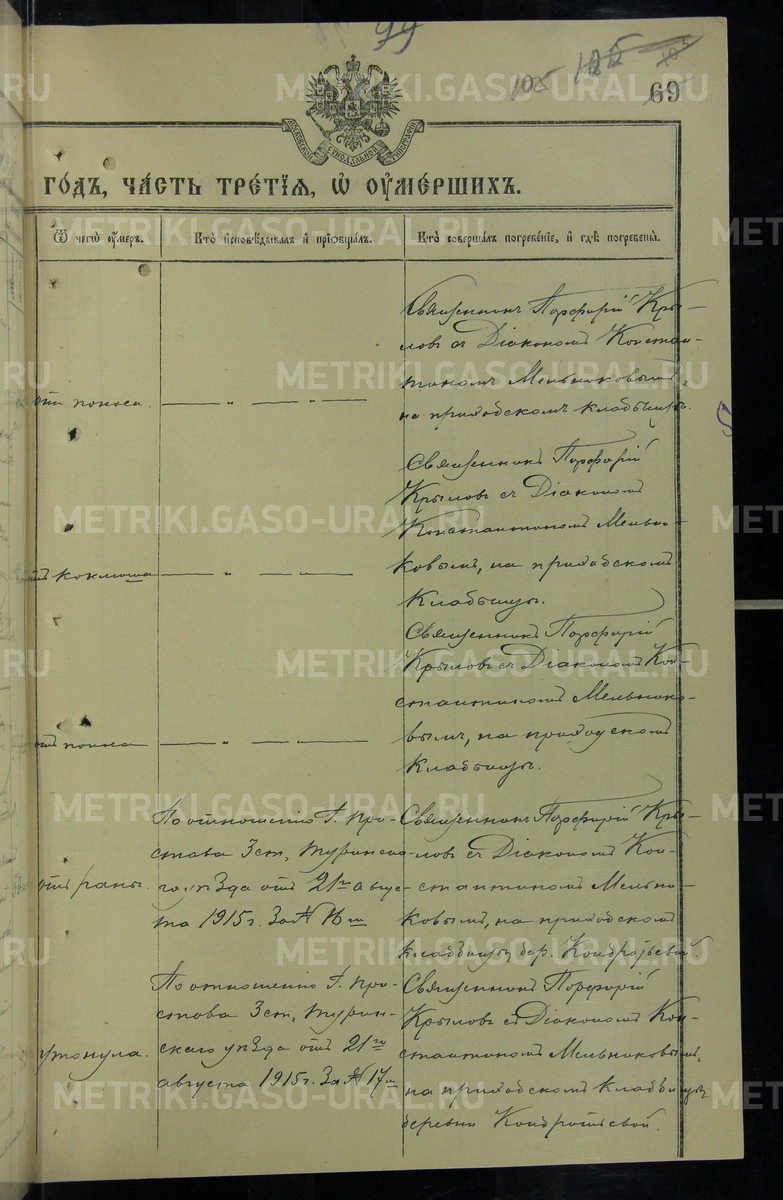 99
105
69
МОСКОВСКОЙ СѴНОДАЛЬНОЙ ТИПОГРАФІИ
ГО́ДЪ, ЧА́СТЬ ТРЕ́ТІѦ, Ѡ҆ ОУ҆МЕ́РШИХЪ.
Ѿ чегѡ̀ оу҆́меръ.
Кто̀ и҆сповѣ́дывалъ и҆ прїѡбща́лъ.
Кто̀ соверша́лъ погребе́нїе, и҆ гдѣ̀ погребены̀.
отъ поноса.
— „ — „ —
Священникъ Порфирій Кры-
ловъ съ Діакономъ Констан-
тиномъ Мельниковымъ,
на приходскомъ кладбищѣ.
отъ коклюша
— „ — „ —
Священникъ Порфирій
Крыловъ съ Діакономъ
Константиномъ Мельни-
ковымъ, на приходскомъ
кладбищѣ.
отъ поноса
— „ — „ —
Священникъ Порфирій
Крыловъ съ Діакономъ Кон-
стантиномъ Мельнико-
вымъ, на приходскомъ
кладбищѣ.
отъ раны.
По отношенію Г. При-
става 3 ст, Туринска-
го уѣзда отъ 21го Авгус-
та 1915 г. За №
Священникъ Порфирій Кры-
ловъ съ Діакономъ Кон-
стантиномъ Мельни-
ковымъ, на приходскомъ
кладбищѣ дер. Кондратьевой.
утонула.
По отношенію Г. При-
става 3 ст, Турин-
скаго уѣзда отъ 21го
августа 1915 г. За №
Священникъ Порфирій
Крыловъ съ Діакономъ Кон-
стантиномъ Мельниковымъ,
на приходскомъ кладбищѣ
деревни Кондратьевой.
METRIKI.GASO-URAL.RU